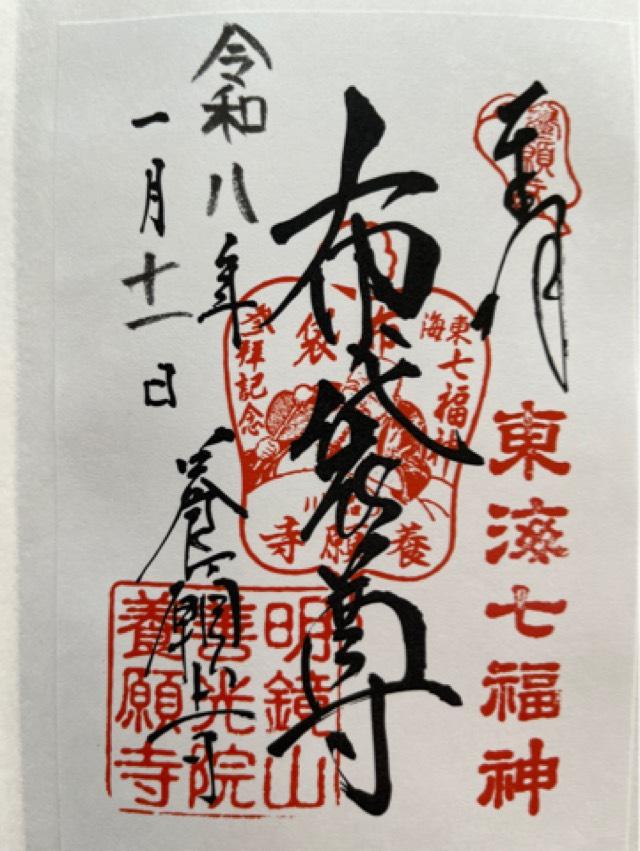 奉拝
養願寺
東海七福神
布袋尊
東海七福神
布袋
参拝記念
品川
養願寺
令和八年
一月十一日
養願寺
明鏡山
善光院
養願寺